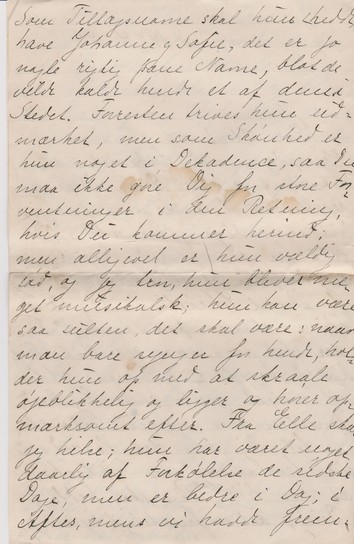 Som Tillægsnavne skal hun hedde
have Johanne & Sofie, det er jo
nogle rigtig pæne Navne, blot de
vilde kalde hende et af dem i
Stedet. Forresten trives hun ud-
mærket, men som Skønhed er
hun noget i Dekadence, saa Du
maa ikke gøre Dig for store For-
ventninger i den Retning,
hvis Du kommer herned;
men alligevel er hun vældig
sød, og jeg tror, hun bliver me-
get musikalsk; hun kan være
saa sulten, det skal være: naar
man bare synger for hende, hol-
der hun op med at skraale
øjeblikkelig og ligger og hører op-
mærksomt efter. Fra Elle skal
jeg hilse; hun har været noget
daarlig af Forkølelse de sidste
Dage, men er bedre i Dag; i
Aftes, mens vi havde frem-